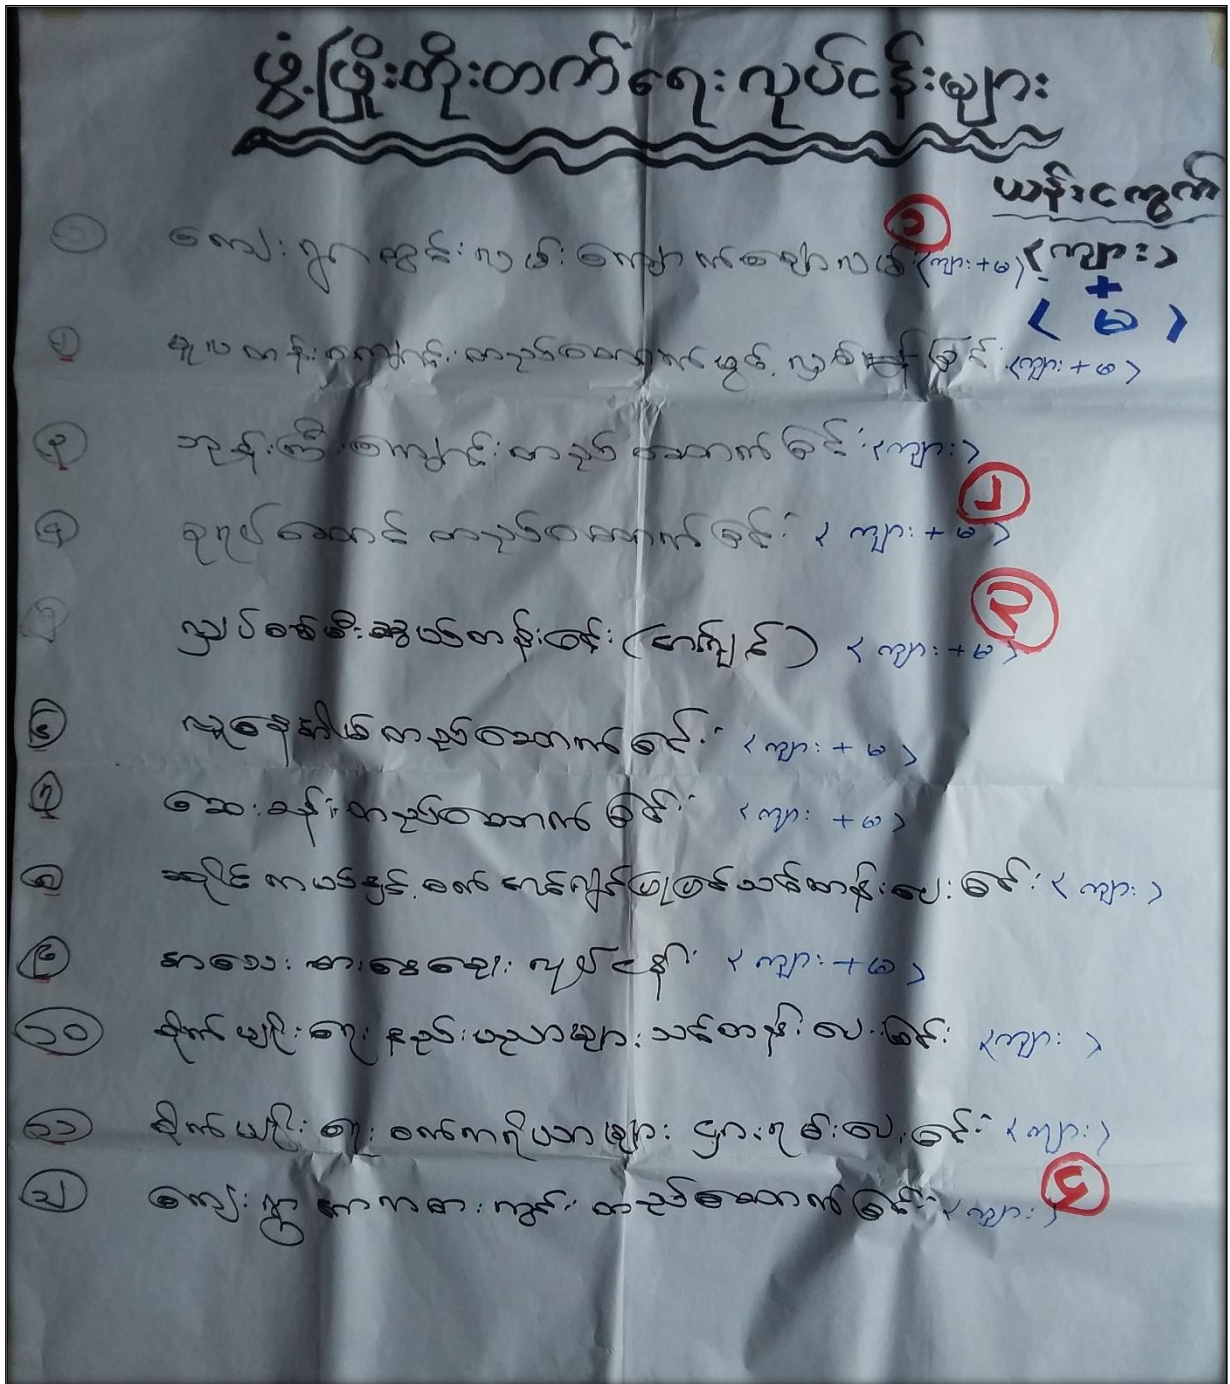 ဖွံ့ဖြိုးတိုးတက်ရေးလုပ်ငန်းများ
ယန်းငကွက်
၁
<ကျား>
+
< မ >
၁ ကျေးရွာတွင်းလမ်း ကျောက်ချောလမ်း <ကျား+မ>
၂ မူလတန်းကျောင်း တည်ဆောက်ဖွင့်လှစ်ခြင်း <ကျား+မ>
၃ ဘုန်းကြီးကျောင်းတည်ဆောက်ခြင်း <ကျား>
၂
၄ ဓမ္မာရုံဆောင် တည်ဆောက်ခြင်း < ကျား+မ >
၃
၅ လျှပ်စစ်မီးသွယ်တန်းခြင်း < ကျား+မ >
၆ လူနေအိမ်တည်ဆောက်ခြင်း < ကျား + မ >
၇ ဆေးခန်းတည်ဆောက်ခြင်း < ကျား +မ >
၈ ဆိုင်ကယ်နှင့် စက် ပြုပြင်သင်တန်းပေးခြင်း < ကျား >
၉ အသေးစားချေးငွေ လုပ်ငန်း < ကျား+မ >
၁၀ စိုက်ပျိုးရေးနည်းပညာများ သင်တန်းပေးခြင်း <ကျား >
၁၁ စိုက်ပျိုးရေး စက်ကရိယာများ ငှားရမ်းပေးခြင်း <ကျား>
၄
၁၂ ကျေးရွာ အားကစားကွင်း တည်ဆောက်ခြင်း <ကျား>